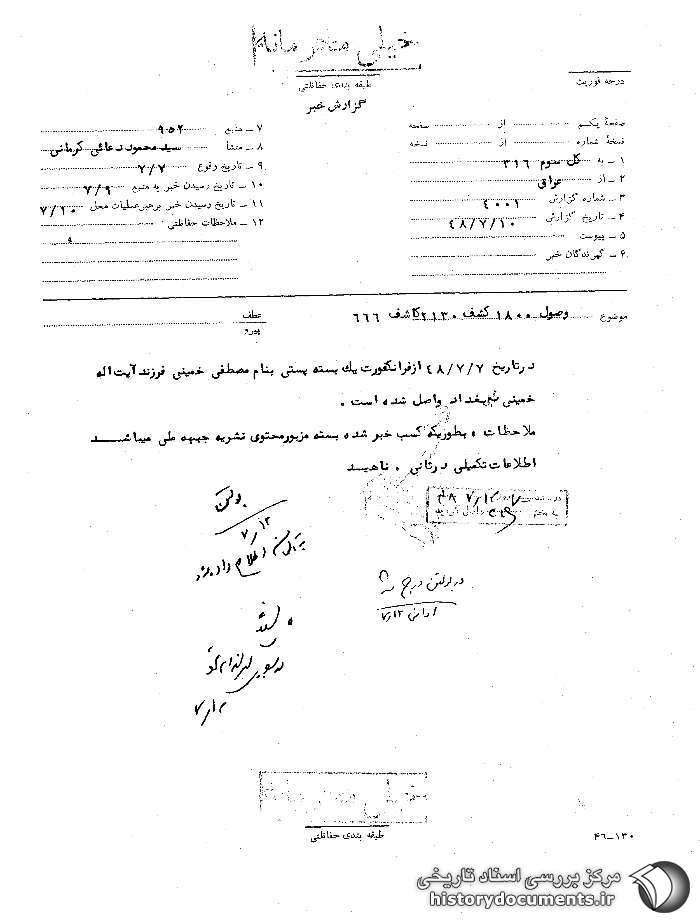 خیلی محرمانه
طبقه بندی حفاظتی
گزارش خبر
درجه فوریت
صفحهٔ یکم از صفحه
نسخهٔ شماره از نسخه
۱ ـ به کل سوم ۳۱۶
۲ ـ از عراق
۳ ـ شماره گزارش ۴۰۰۱
۴ ـ تاریخ گزارش ۴۸/۷/۱۰
۵ ـ پیوست
۶ ـ گیرندگان خبر
۷ ـ منبع ۹۵۲
۸ ـ منشأ سید محمود دعائی کرمانی
۹ ـ تاریخ وقوع ۷/۷
۱۰ ـ تاریخ رسیدن خبر به منبع ۷/۹
۱۱ ـ تاریخ رسیدن خبر برهبر عملیات محل ۷/۱۰
۱۲ ـ ملاحظات حفاظتی
موضوع وصول ۱۸۰۰ کشف ۲۱۳۰ کاشف ۶۶۶
عطف
پیرو
در تاریخ ۴۸/۷/۷ از فرانکفورت یک بسته پستی بنام مصطفی خمینی فرزند آیت اله
خمینی ببغداد واصل شده است .
ملاحظات ، بطوریکه کسب خبر شده بسته مزبور محتوی نشریه جبهه ملی میباشد
اطلاعات تکمیلی در ثانی . ناهید
بولتن
۷/۱۲
اعلام داده شد
در بولتن درج شد
۷/۱۲
خیلی محرمانه
طبقه بندی حفاظتی
۴۶-۱۳۰
مرکز بررسی اسناد تاریخی
historydocuments.ir